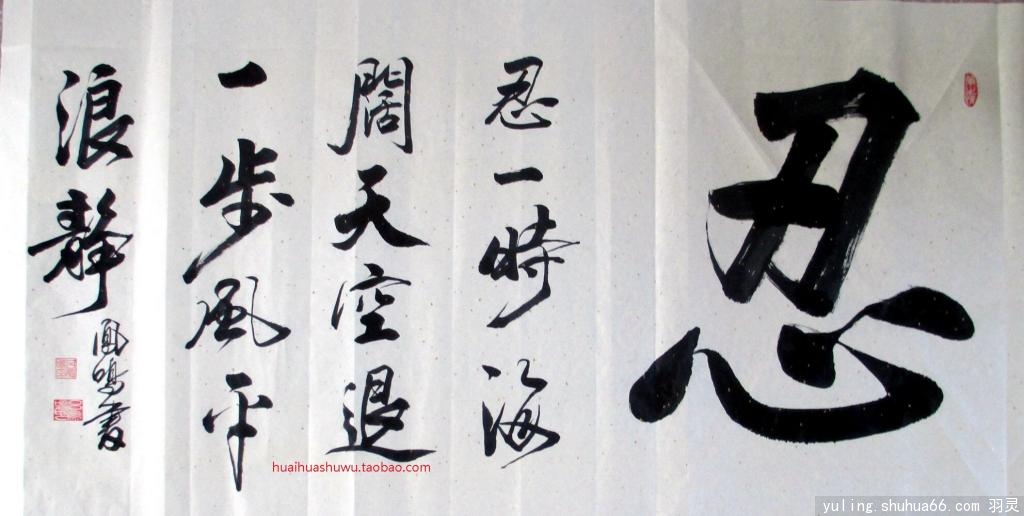 忍
忍一時海
闊天空退
一步風平
浪靜
鳴書
huaihuashuwu.taobao.com
yuling.shuhua66.com 羽灵